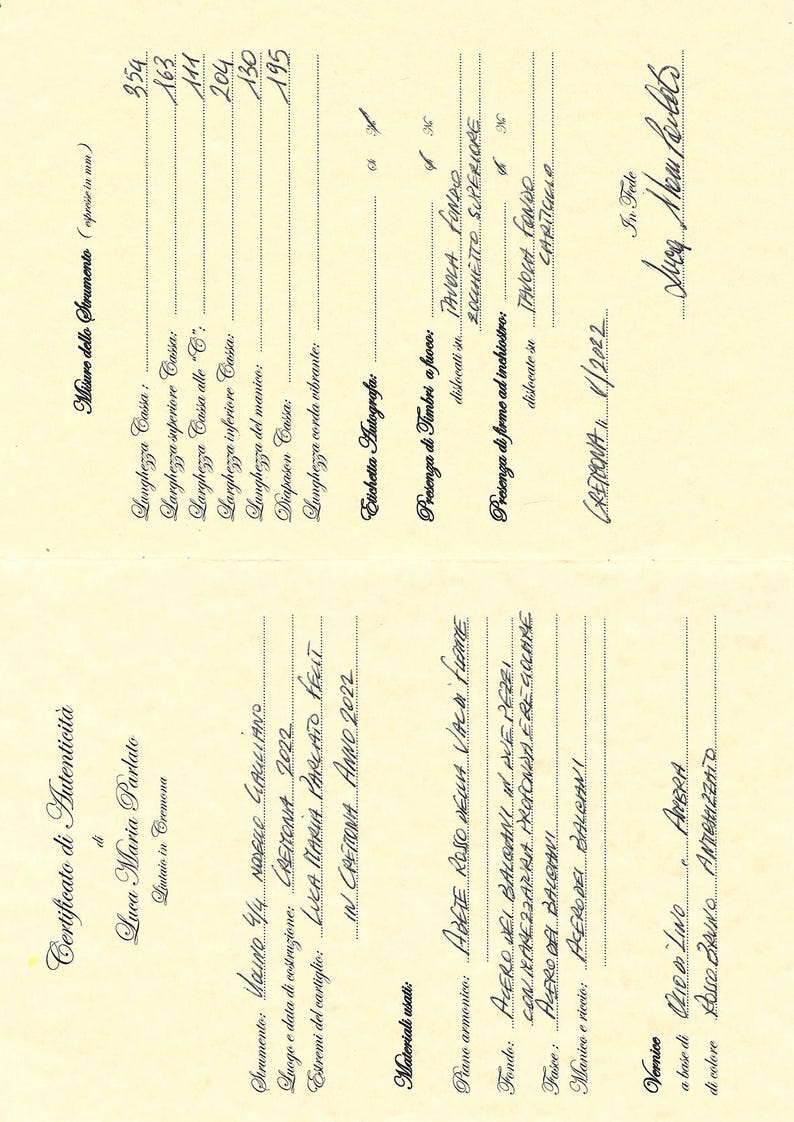 Certificato di Autenticità
di
Luca Maria Parlato
Liutaio in Cremona
Strumento: VIOLINO 4/4 MODELLO GAGLIANO
Luogo e data di costruzione: CREMONA 2022
Estremi del cartiglio: LUCA MARIA PARLATO FECIT
IN CREMONA ANNO 2022
Materiali usati:
Piano armonico: ABETE ROSSO DELLA VAL DI FIEMME
Fondo: ACERO DEI BALCANI IN DUE PEZZI
CON MAREZZATURA PROFONDA E REGOLARE
Fasce: ACERO DEI BALCANI
Manico e riccio: ACERO DEI BALCANI
Vernice
a base di OLIO DI LINO e AMBRA
di colore ROSSO BRUNO ANTICHIZZATO
Misure dello Strumento (espresse in mm)
Lunghezza Cassa: 354
Larghezza superiore Cassa: 163
Larghezza Cassa alle "C": 111
Larghezza inferiore Cassa: 204
Lunghezza del manico: 130
Diapason Cassa: 195
Lunghezza corda vibrante:
Etichetta Autografa: Si No
Presenza di Timbri a fuoco: Si No
dislocati su TAVOLA FONDO
ZOCCHETTO SUPERIORE
Presenza di firme ad inchiostro: Si No
dislocate su TAVOLA FONDO
CARTIGLIO
CREMONA, lì V/2022
In Fede
Luca Maria Parlato